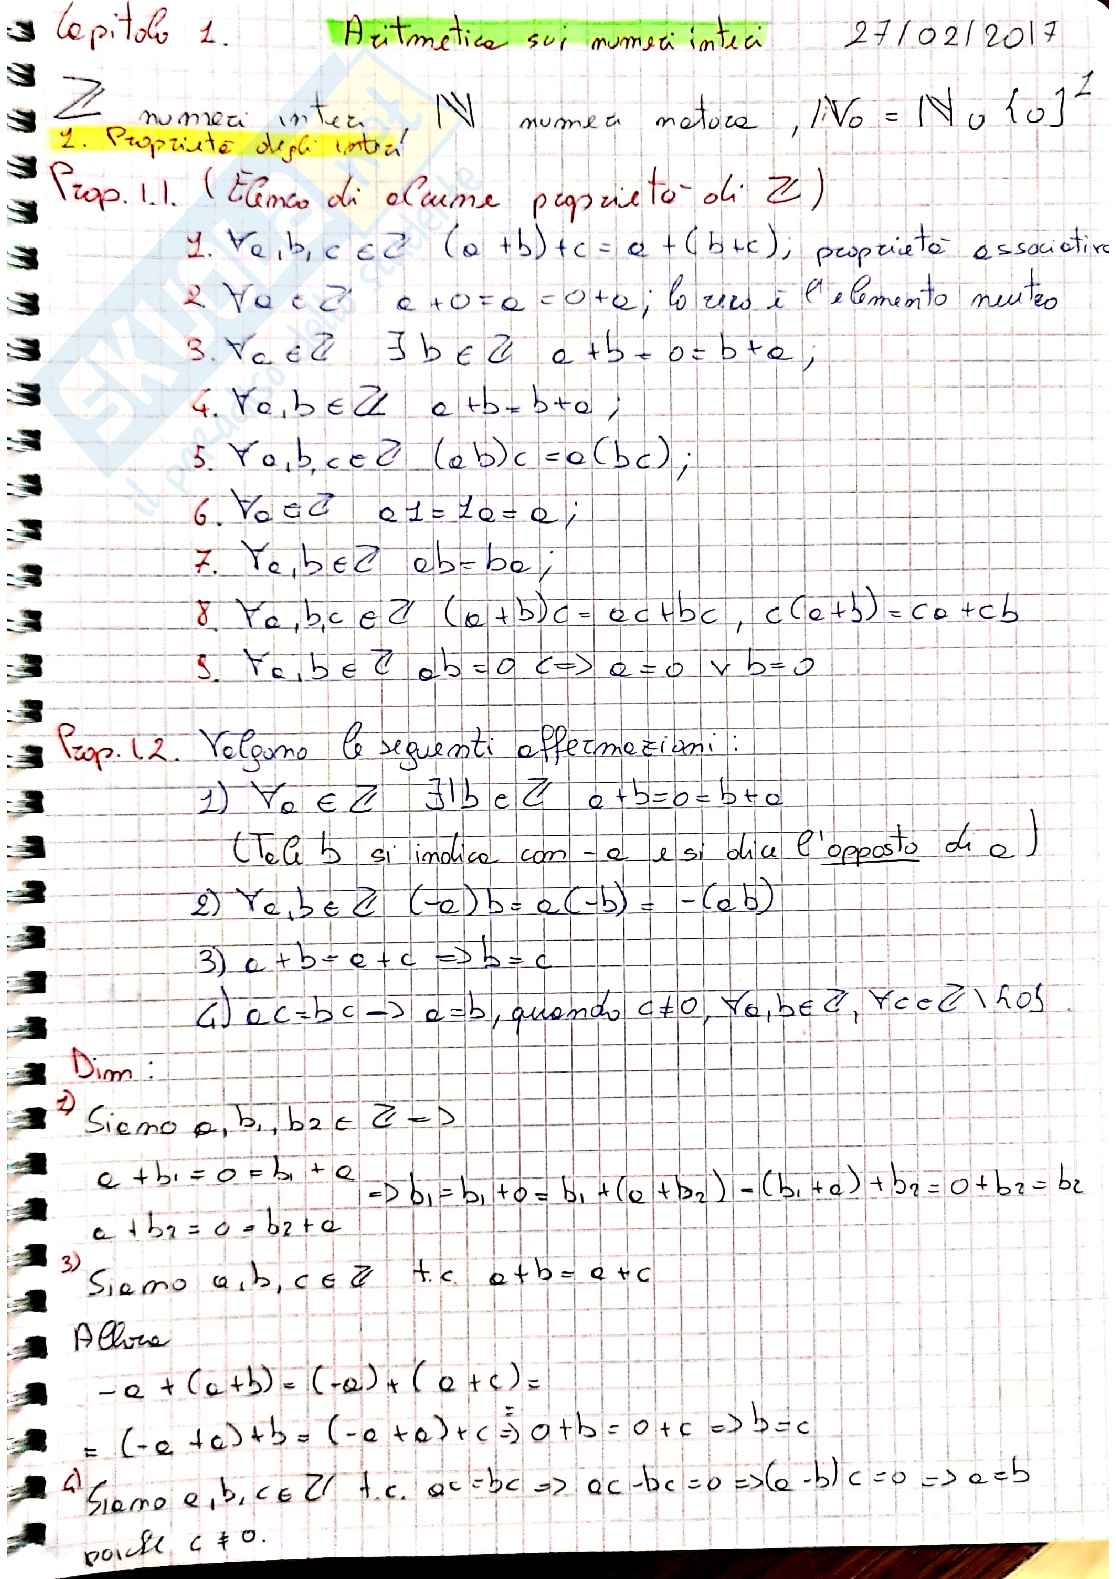 Capitolo 1. Aritmetica sui numeri interi 27/02/2017
1
ℤ numeri interi, ℕ numeri naturali, ℕ₀ = ℕ ∪ {0}
1. Proprietà degli interi
Prop. 1.1. (Elenco di alcune proprietà di ℤ)
1. ∀a,b,c ∈ ℤ (a+b)+c = a+(b+c); proprietà associativa
2. ∀a ∈ ℤ a+0=a=0+a; lo zero è l'elemento neutro
3. ∀a ∈ ℤ ∃ b ∈ ℤ a+b=0=b+a;
4. ∀a,b ∈ ℤ a+b=b+a;
5. ∀a,b,c ∈ ℤ (ab)c=a(bc);
6. ∀a ∈ ℤ a1=1a=a;
7. ∀a,b ∈ ℤ ab=ba;
8. ∀a,b,c ∈ ℤ (a+b)c=ac+bc, c(a+b)=ca+cb
9. ∀a,b ∈ ℤ ab=0 <=> a=0 ∨ b=0
Prop. 1.2. Valgono le seguenti affermazioni:
1) ∀a ∈ ℤ ∃!b ∈ ℤ a+b=0=b+a
(Tale b si indica con -a e si dice l'opposto di a)
2) ∀a,b ∈ ℤ (-a)b=a(-b)= -(ab)
3) a+b=a+c => b=c
4) ac=bc -> a=b, quando c≠0, ∀a,b∈ℤ, ∀c∈ℤ\{0}.
Dim:
1) Siano a,b₁,b₂ ∈ ℤ =>
a+b₁=0=b₁+a
=> b₁=b₁+0=b₁+(a+b₂)=(b₁+a)+b₂=0+b₂=b₂
a+b₂=0=b₂+a
3) Siano a,b,c ∈ ℤ t.c. a+b=a+c
Allora
-a+(a+b)=(-a)+(a+c)=
=(-a+a)+b=(-a+a)+c => 0+b=0+c => b=c
4) Siano a,b,c ∈ ℤ t.c. ac=bc => ac-bc=0 => (a-b)c=0 => a=b
poiché c≠0.
SKUOLA.net
il portale dello studente